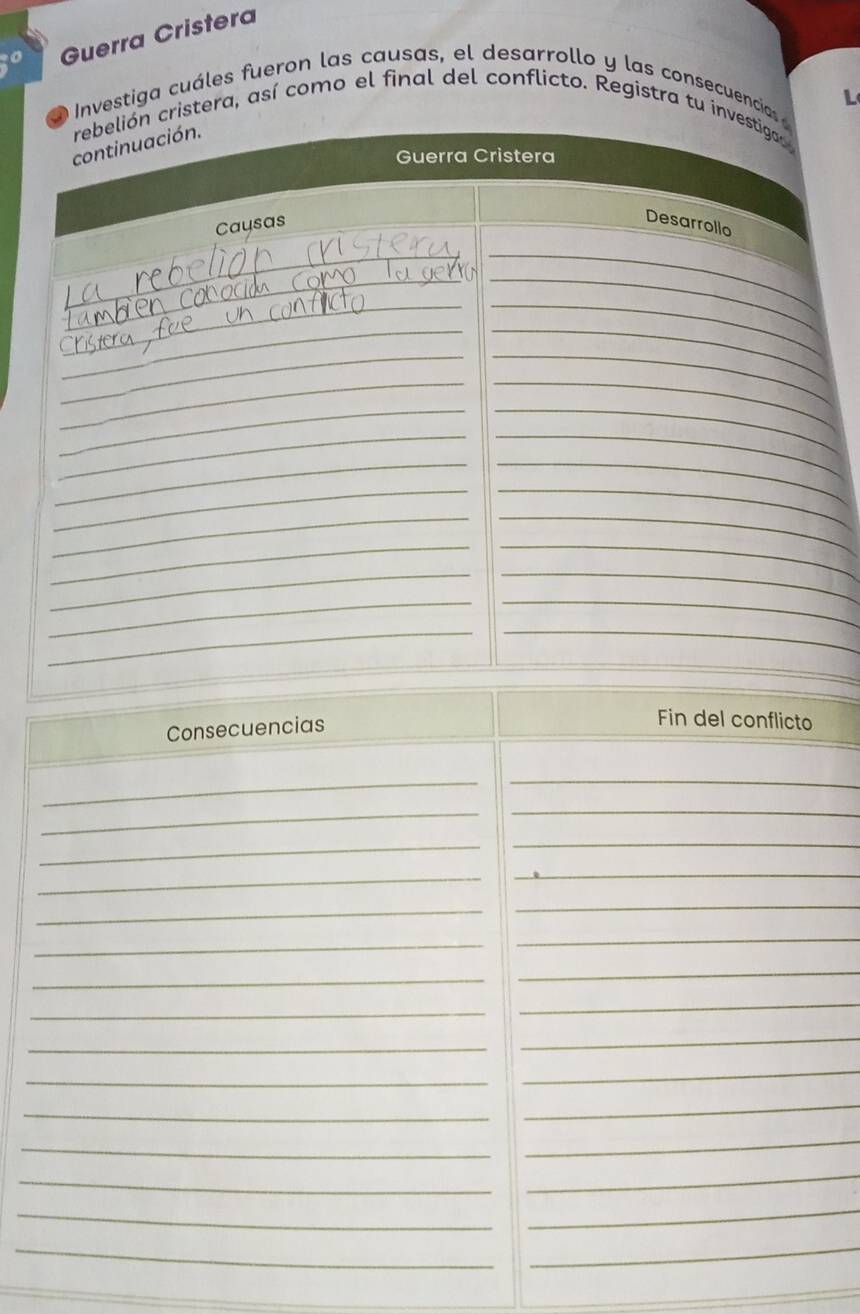 5°
Guerra Cristera
Investiga cuáles fueron las causas, el desarrollo y las consecuencias
rebelión cristera, así como el final del conflicto. Registra tu
continuación.
Guerra Cristera
Causas
Desarrollo
La rebelión cristera,
tambien conocida como la gerra
cristera, fue un conflicto
Consecuencias
Fin del conflicto